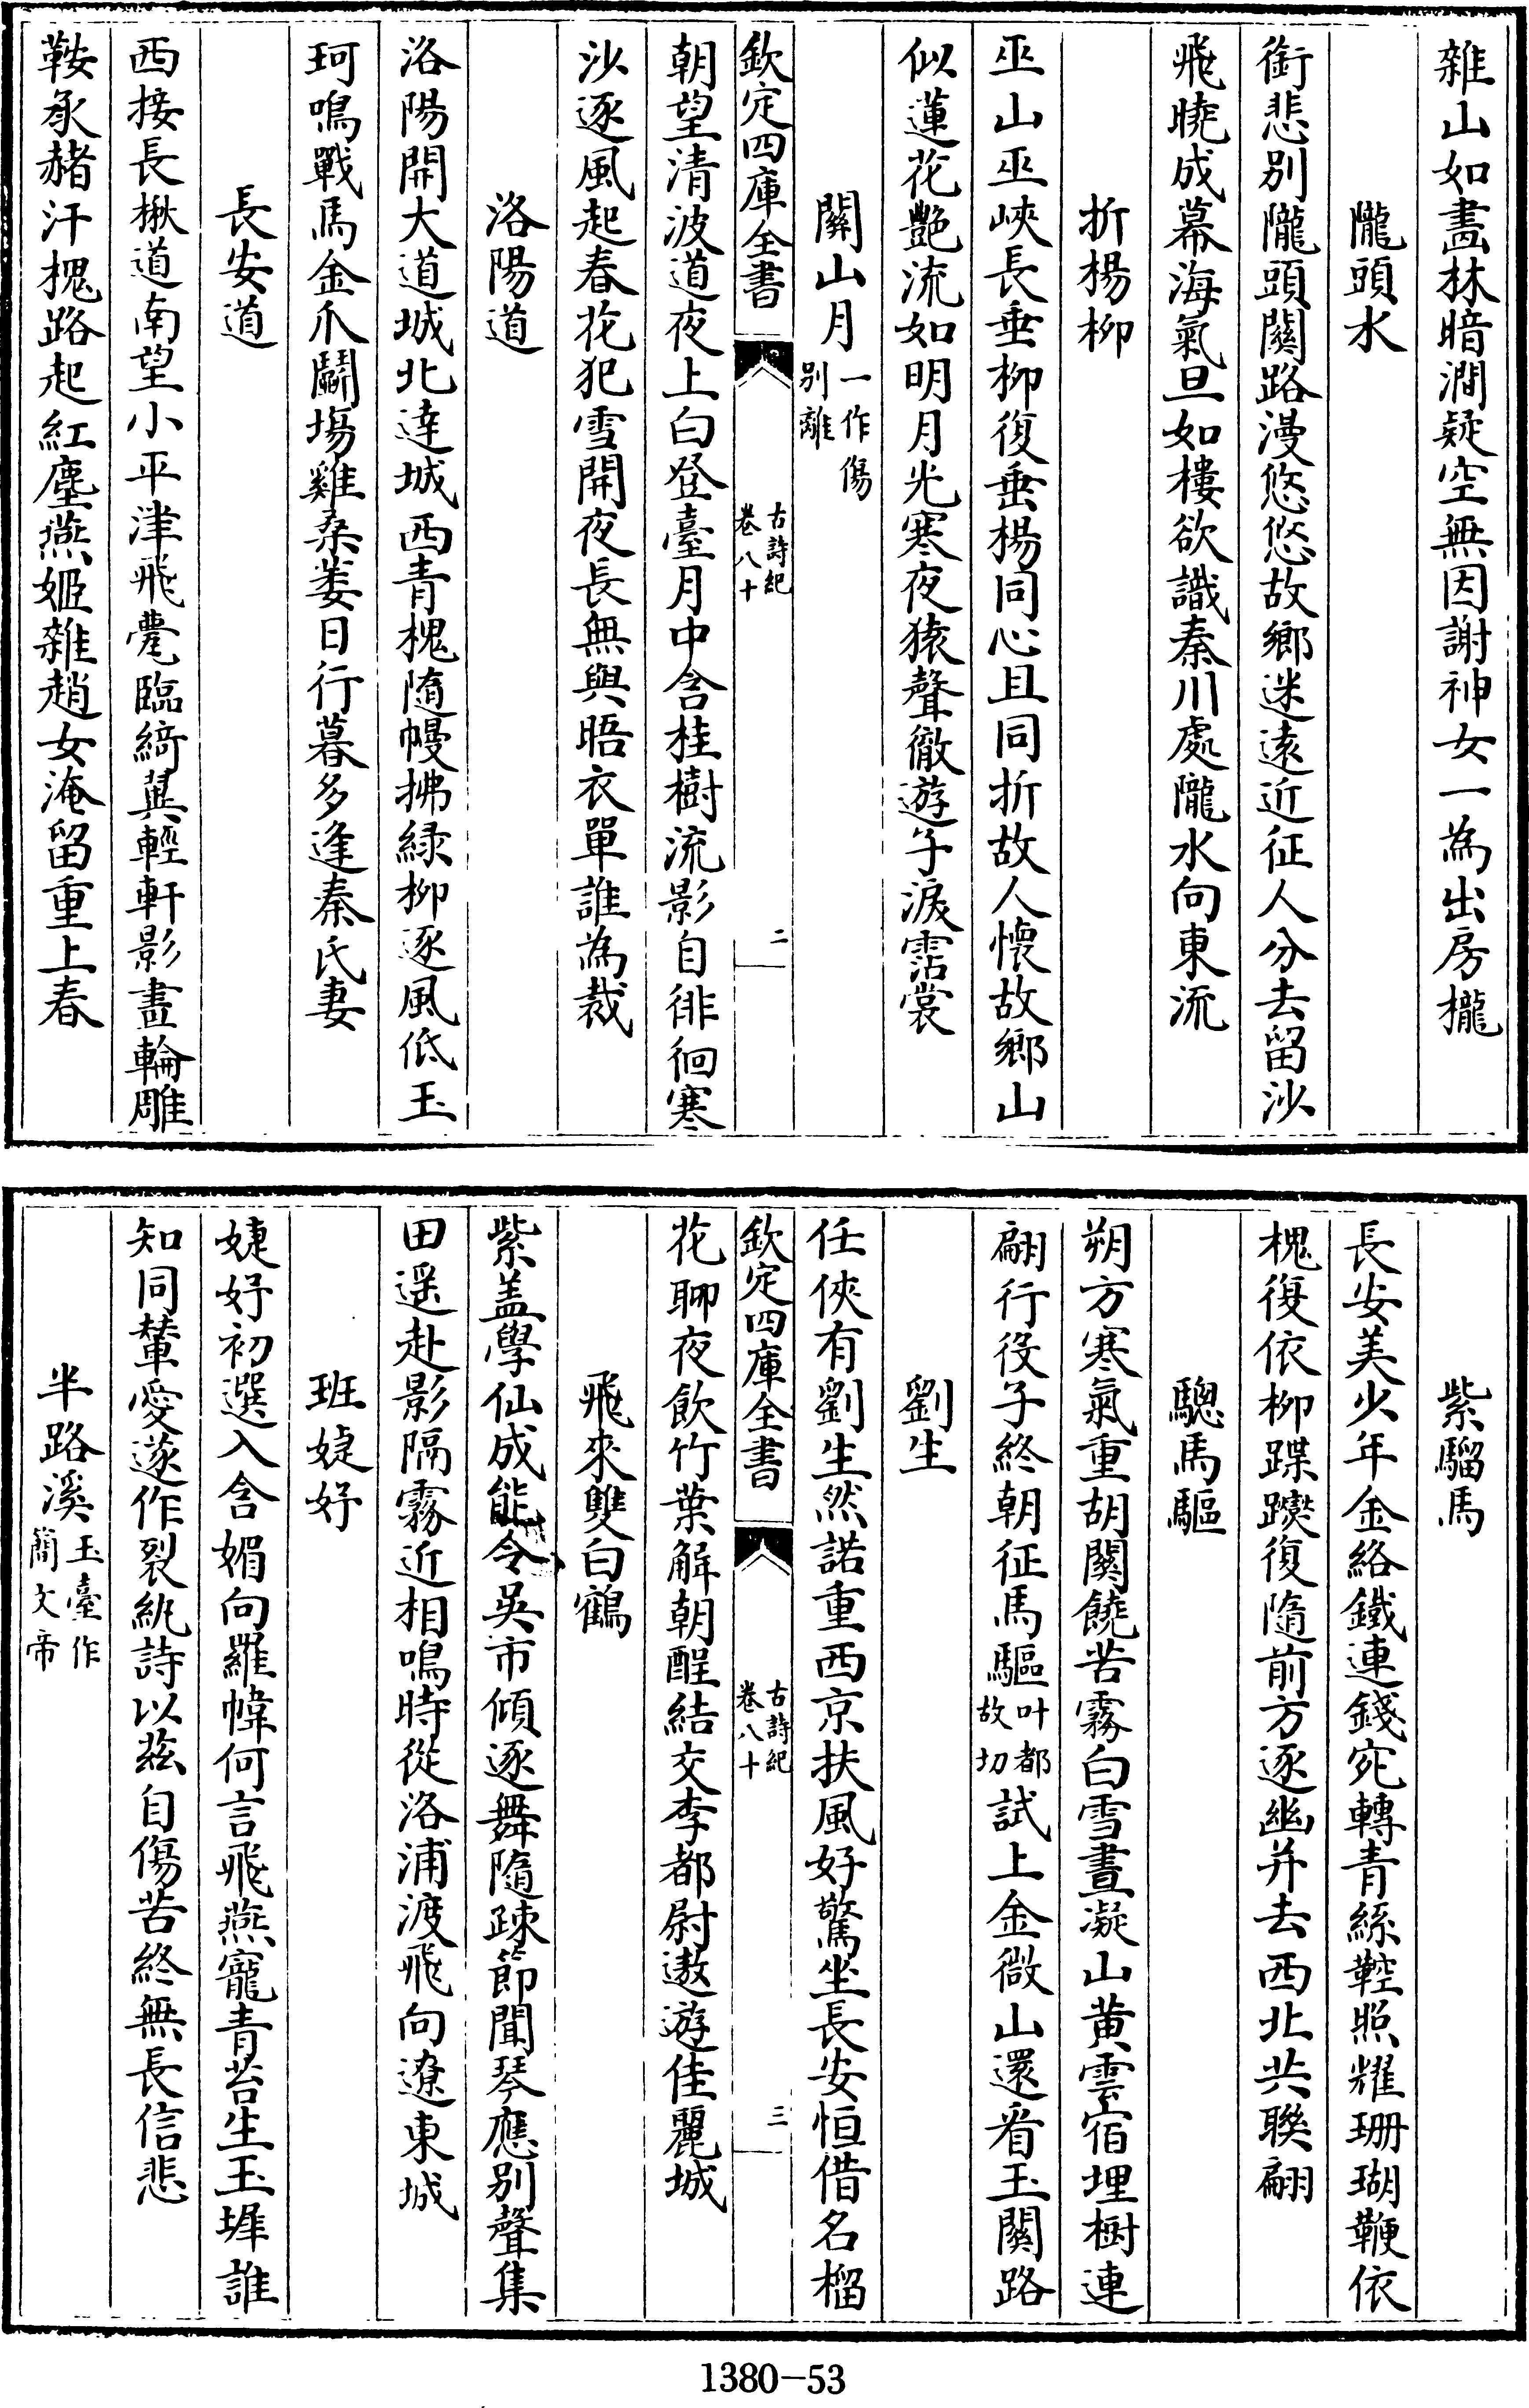 雜山如畵林暗澗疑空無因謝神女一為出房櫳
隴頭水
銜悲别隴頭關路漫悠悠故鄉迷遠近征人分去留沙
飛曉成幕海氣旦如樓欲識秦川處隴水向東流
折楊柳
巫山巫峽長垂柳復垂楊同心且同折故人懷故鄉山
似蓮花艷流如明月光寒夜猿聲徹遊子淚霑裳
關山月一作傷别離
欽定四庫全書
古詩紀
卷八十
二
朝望清波道夜上白登臺月中含桂樹流影自徘徊寒
沙逐風起春花犯雪開夜長無與晤衣單誰為裁
洛陽道
洛陽開大道城北達城西青槐隨幔拂緑柳逐風低玉
珂鳴戰馬金爪鬭塲雞桑萎日行暮多逢秦氏妻
長安道
西接長楸道南望小平津飛甍臨綺翼輕軒影畫輪雕
鞍承赭汗槐路起紅塵燕姬雜趙女淹留重上春
紫騮馬
長安美少年金絡鐵連錢宛轉青絲鞚照耀珊瑚鞭依
槐復依柳躞蹀復隨前方逐幽并去西北共聯翩
驄馬驅
朔方寒氣重胡關饒苦霧白雪晝凝山黄雲宿埋樹連
翩行役子終朝征馬驅叶都故切試上金微山還看玉關路
劉生
任俠有劉生然諾重西京扶風好驚坐長安恒借名榴
欽定四庫全書
古詩紀
卷八十
三
花聊夜飲竹葉解朝酲結交李都尉遨遊佳麗城
飛來雙白鶴
紫盖學仙成能令吳市傾逐舞隨疎節聞琴應别聲集
田遥赴影隔霧近相鳴時從洛浦渡飛向遼東城
班婕妤
婕妤初選入含媚向羅幃何言飛燕寵青苔生玉墀誰
知同輦愛遂作裂紈詩以兹自傷苦終無長信悲
半路溪玉臺作簡文帝
1380-53